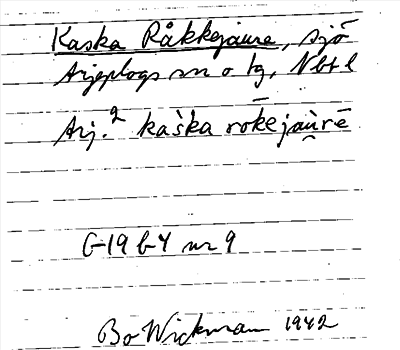 Kaska Råkkejaure, sjö
Arjeplogs sn o tg, Nbt l
Arj.2 kaška rōkejau̯rē
G-19 b-4 nr 9
Bo Wickman 1942